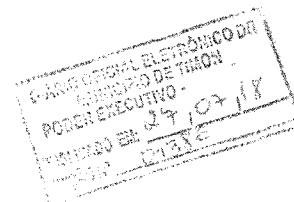 DIÁRIO OFICIAL ELETRÔNICO DO
MUNICÍPIO DE TIMON -
PODER EXECUTIVO -
EM: 27/07/18